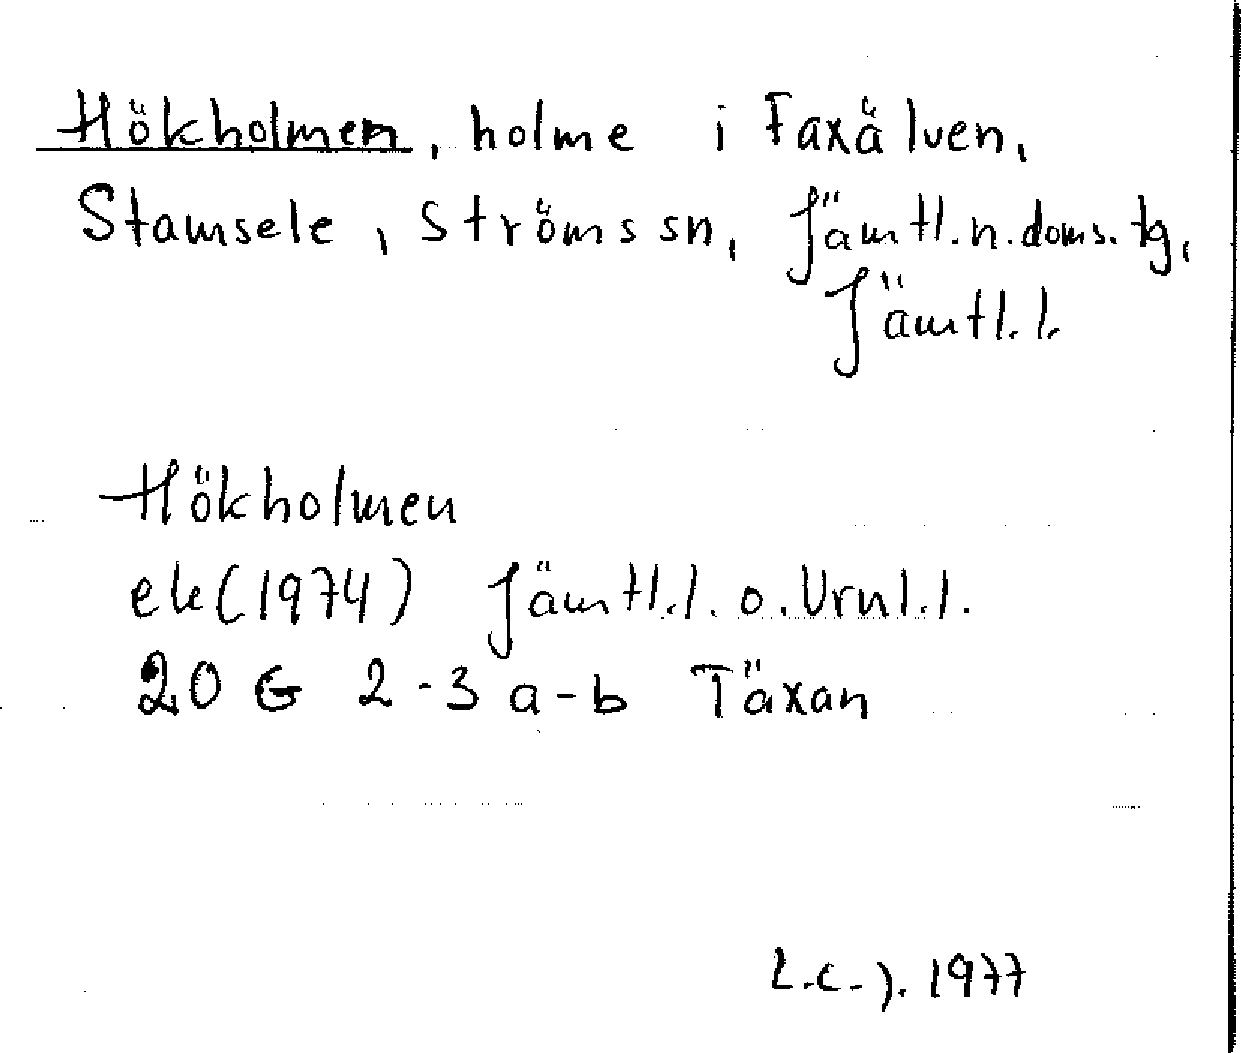 Hökholmen, holme i Faxälven,
Stamsele, Ströms sn, Jämtl. n. doms. tg,
Jämtl. l.
Hökholmen
ek (1974) Jämtl. l. o. Vrnl. l.
20 G 2-3 a-b Täxan
L.C-J. 1977